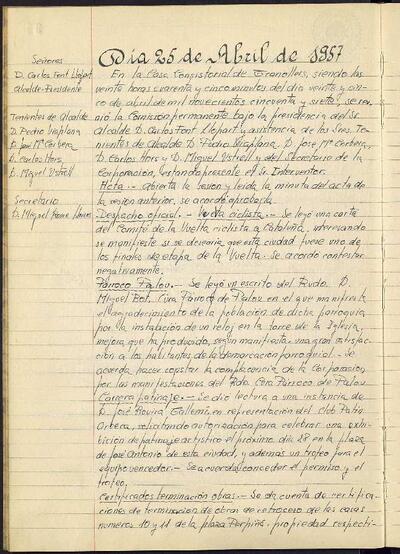 Día 25 de Abril de 1957
Señores
D. Carlos Font Llopart
Alcalde-Presidente
Tenientes de Alcalde
D. Pedro Viaplana
D. José Mª Corbera
D. Carlos Hors
D. Miguel Ustrell
Secretario
D. Miguel
En la Casa Consistorial de Granollers, siendo las
veinte horas cuarenta y cinco minutos del dia veinte y cin-
co de abril de mil novecientos cincuenta y siete, se reu-
nió la Comisión permanente bajo la presidencia del Sr.
Alcalde D. Carlos Font Llopart y asistencia de los Sres. Te-
nientes de Alcalde D. Pedro Viaplana, D. José Mª Corbera,
D. Carlos Hors y D. Miguel Ustrell y del Secretario de la
Corporación, estando presente el Sr. Interventor.
Acta.- Abierta la sesión y leida la minuta del acta de
la sesion anterior, se acordó aprobarla.
Despacho oficial.- Vuelta ciclista.- Se leyó una carta
del Comité de la Vuelta ciclista a Cataluña, interesando
se manifieste si se desearia que esta ciudad fuese uno de
los finales de etapa de la Vuelta. Se acordó contestar
negativamente.
Párroco Palou.- Se leyó un escrito del Rvdo. D.
Miguel Bot, Cura Párroco de Palou en el que manifiesta
el agradecimiento de la población de dicha parroquia
por la instalación de un reloj en la torre de la Iglesia,
mejora que ha producido, segun manifiesta, una gran satisfac-
ción a los habitantes de la demarcación parroquial.- Se
acuerda hacer constar la complacencia de la Corporacion
por las manifestaciones del Rdo. Cura Párroco de Palou
Carrera patinaje.- Se dio lectura a una instancia de
D. José Rovira Tallemí, en representación del Club Patin
Orbea, solicitando autorización para celebrar una exhi-
bición de patinaje artistico el próximo dia 28 en la plaza
de José Antonio de esta ciudad, y ademas un trofeo para el
equipo vencedor.- Se acuerda conceder el permiso y el
trofeo.
Certificados terminación obras.- Se da cuenta de certifica-
ciones de terminacion de obras de retroceso de las casas
numeros 10 y 11 de la plaza Perpiñá, propiedad respecti-